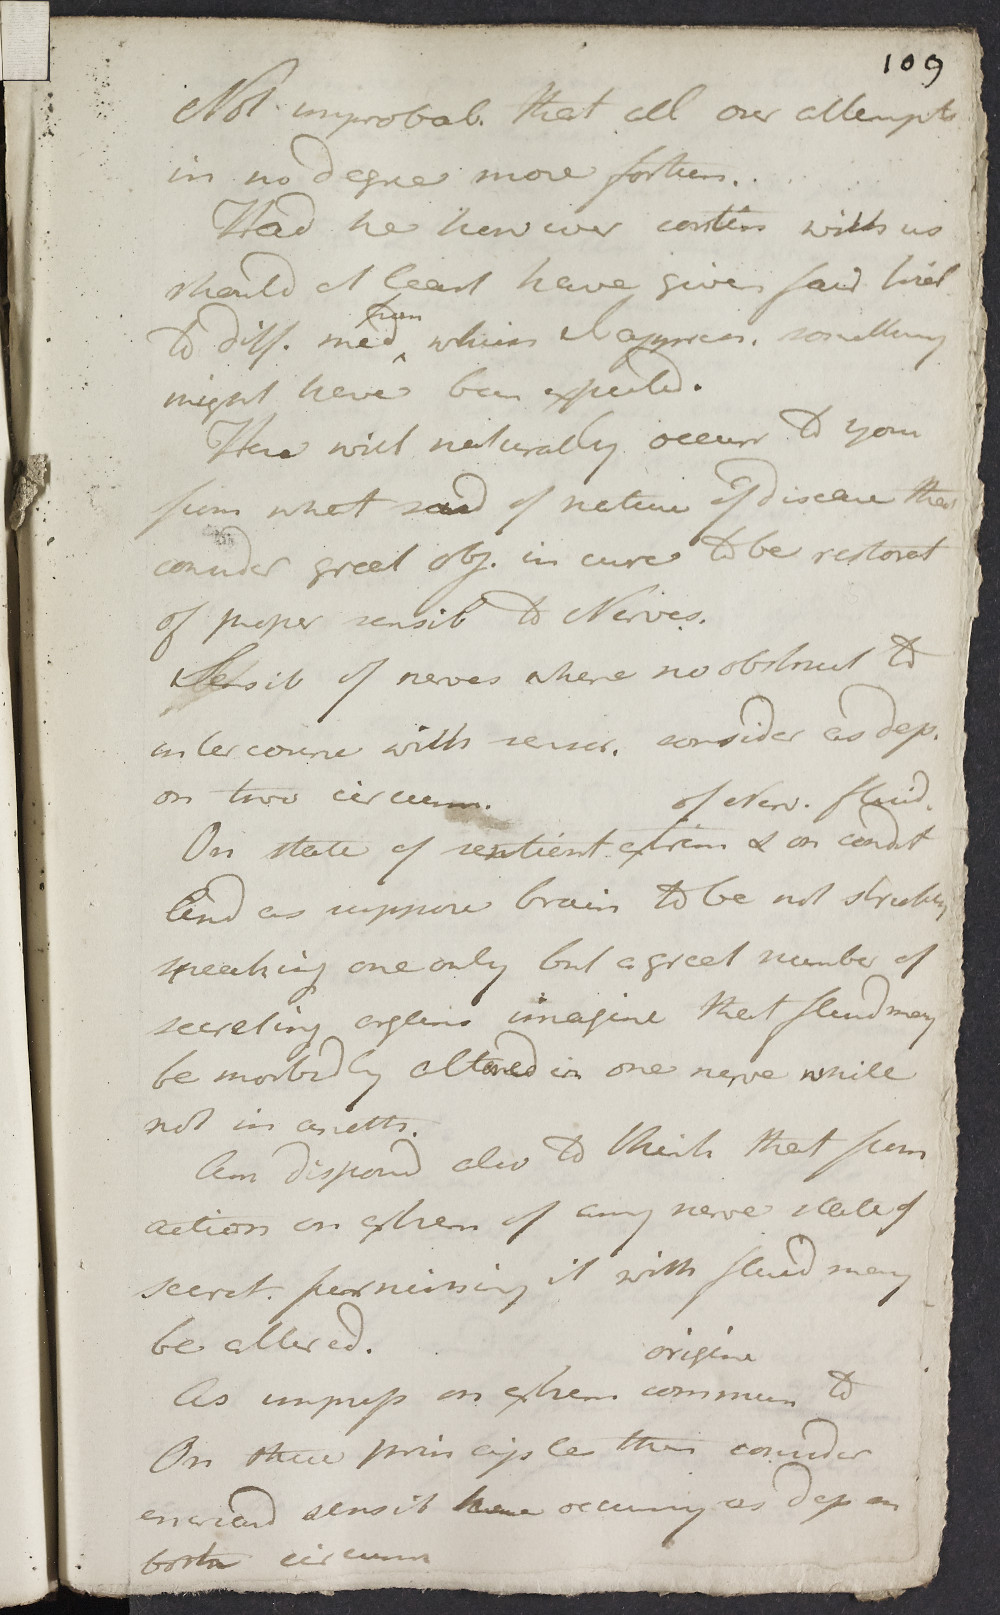 109
Not improbab. that all our attempts
in no degree more fortun.
Had he however contin with us
should at least have given fair trial
to diff. med from whien happen. something
might have been expected.
Here will naturally occurr to you
from what said of nature of disease that
consider great obj. in cure to be restorat
of proper sensib to Nerves.
Sensib of nerves where no obstruct to
intercourse with sensor. consider as dep.
on two circum.
of Nerv. fluid.
On state of sentient extrem & on condit
And as suppose brain to be not strictly
speaking one only but a great number of
secreting organs imagine that fluid may
be morbidly altered in one nerve while
not in anoth.
Am disposed also to think that from
action on extrem of any nerve state of
secret. furnishing it with fluid may
be altered.
origine
As impress on extrem commun to
On these principles then consider
encreasd sensib here occurring as dep on
both circum